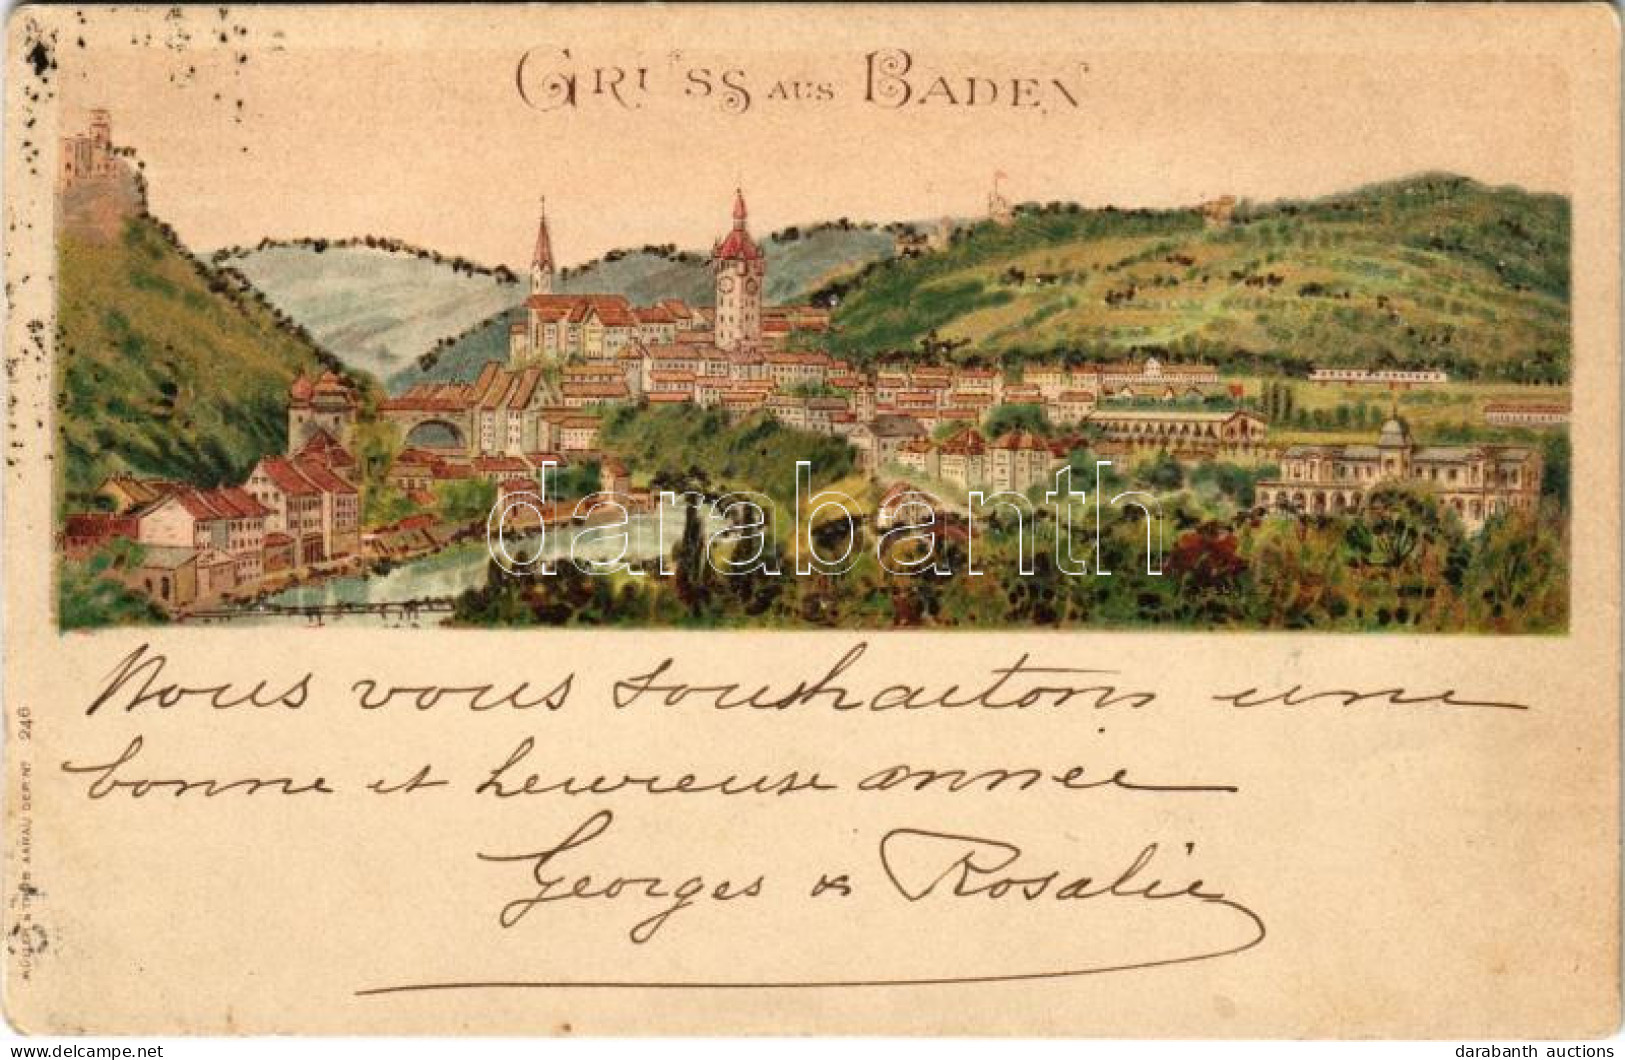 GRUSS AUS BADEN
darabanth
Nous vous souhaitons une
bonne et heureuse année
Georges & Rosalie
MÜLLER & TRÜB AARAU DEP. No 246
www.delcampe.net/store/bestoftheworld
darabanth auctions